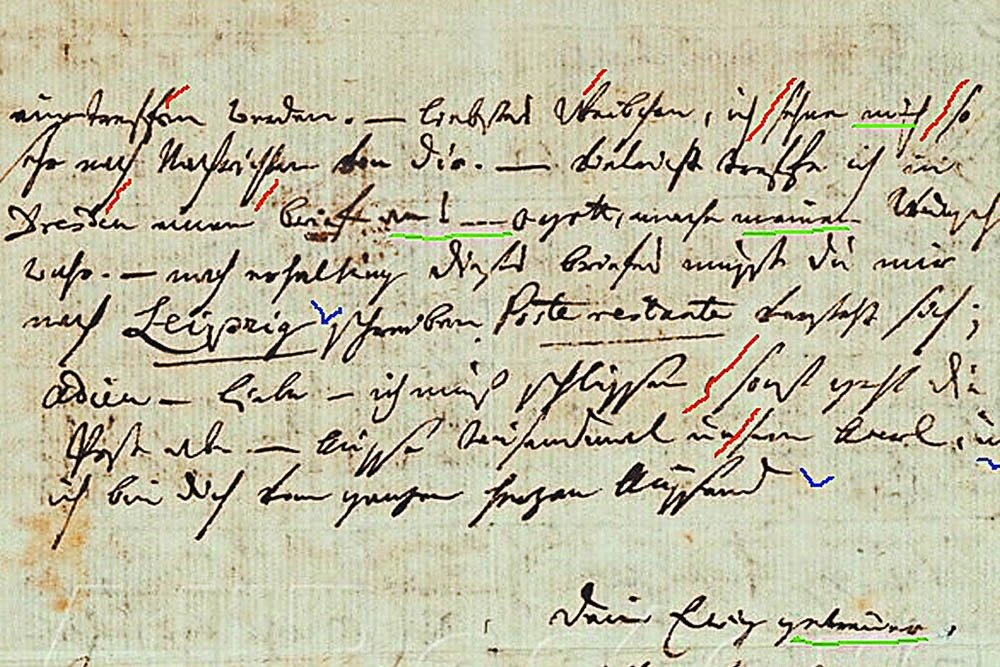 eintreffen werden. — liebstes Weibchen, ich sehne mich so
sehr nach Nachrichten von Dir. — vieleicht treffe ich in
Dresden einen brief an! — o gott, mache meinen Wunsch
wahr. — nach erhaltung dieses briefes musst du mir
nach Leipzig schreiben, Poste restante versteht sich;
adieu — liebe — ich muß schlüssen, sonst geht die
Post ab. — küsse tausendmal unsern Carl,
ich bin dich vom ganzen herzen küssend
Dein Ewig getreuer